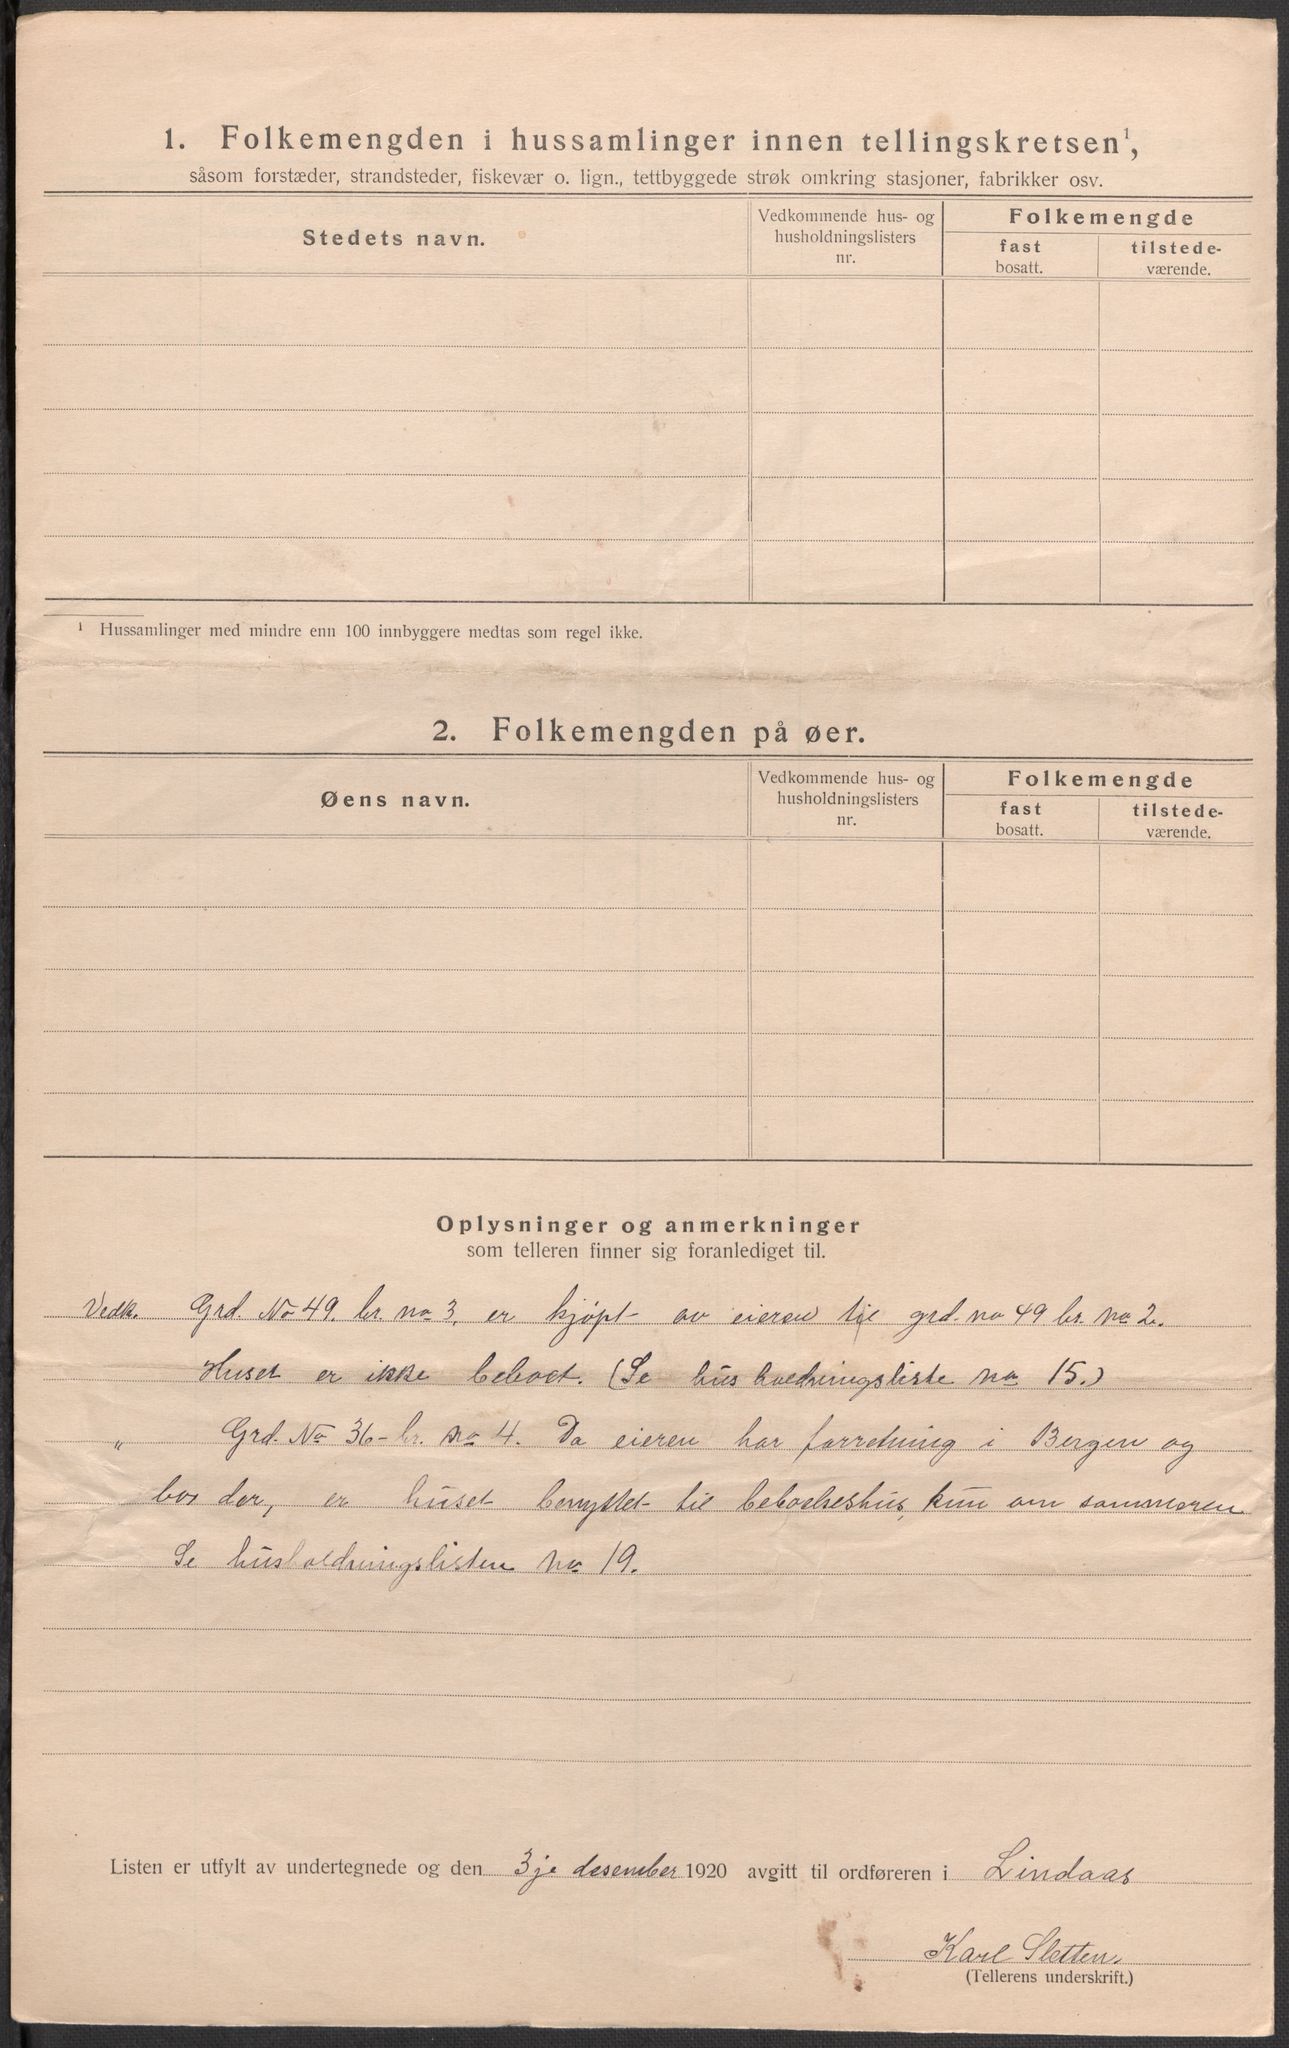 1. Folkemengden i hussamlinger innen tellingskretsen¹,
såsom forstæder, strandsteder, fiskevær o. lign., tettbyggede strøk omkring stasjoner, fabrikker osv.
Stedets navn.
Vedkommende hus- og
husholdningslisters
nr.
Folkemengde
fast
bosatt.
tilstede-
værende.
¹ Hussamlinger med mindre enn 100 innbyggere medtas som regel ikke.
2. Folkemengden på øer.
Øens navn.
Vedkommende hus- og
husholdningslisters
nr.
Folkemengde
fast
bosatt.
tilstede-
værende.
Oplysninger og anmerkninger
som telleren finner sig foranlediget til.
Vedk. Grd. No 49. br. no 3. er kjøpt av eieren til grd. no 49 br. no 2.
Huset er ikke beboet. (Se husholdningsliste no 15.)
" Grd. No 36 - br. no 4. Da eieren har forretning i Bergen og
bor der, er huset benyttet til beboelseshus, kun om sommeren
Se husholdningslisten no 19.
Listen er utfylt av undertegnede og den 3je desember 1920 avgitt til ordføreren i Lindaas
Karl Sletten.
(Tellerens underskrift.)